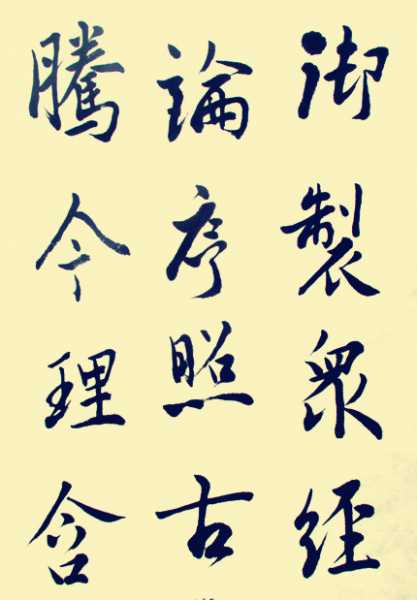 御製衆經
論序照古
騰今理含